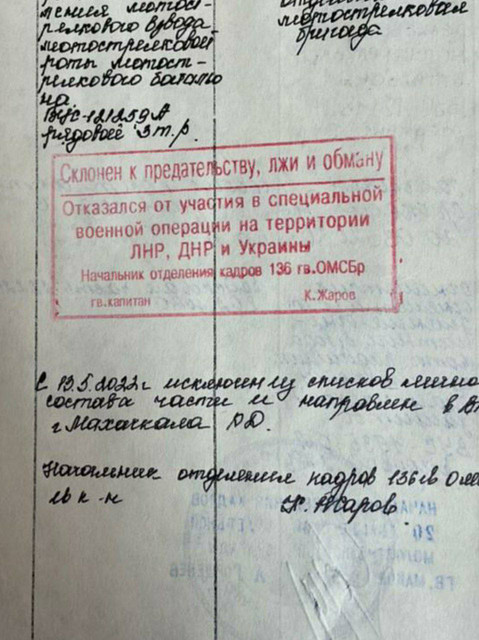 релкового взвода
мотострелковой
роты мотост-
релкового баталь
на.
ВУС-121259А
рядовой 3 т.р.
мотострелковая
бригада
Склонен к предательству, лжи и обману
Отказался от участия в специальной
военной операции на территории
ЛНР, ДНР и Украины
Начальник отделения кадров 136 гв.ОМСБр
гв.капитан К.Жаров
С 13.5.2022г исключен из списков лично
состава части и направлен в В
г. Махачкала РД.
Начальник отделения кадров 136 гв ОМС
гв к-н К. Жаров